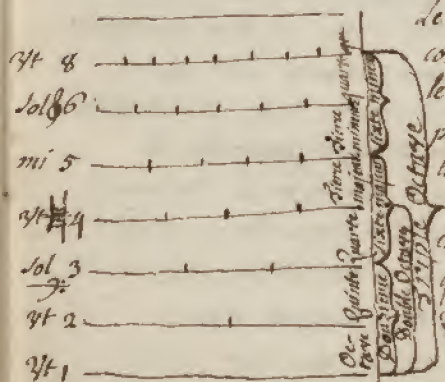 Vt 8
sol 6
mi 5
Vt 4
sol 3
Vt 2
Vt 1
Octave
Quinte
Quarte
Tierce majeur
Tierce mineure
quarte
Douzieme
Double Octave
Sixte majeur
Sixte mineur
Triple Octave